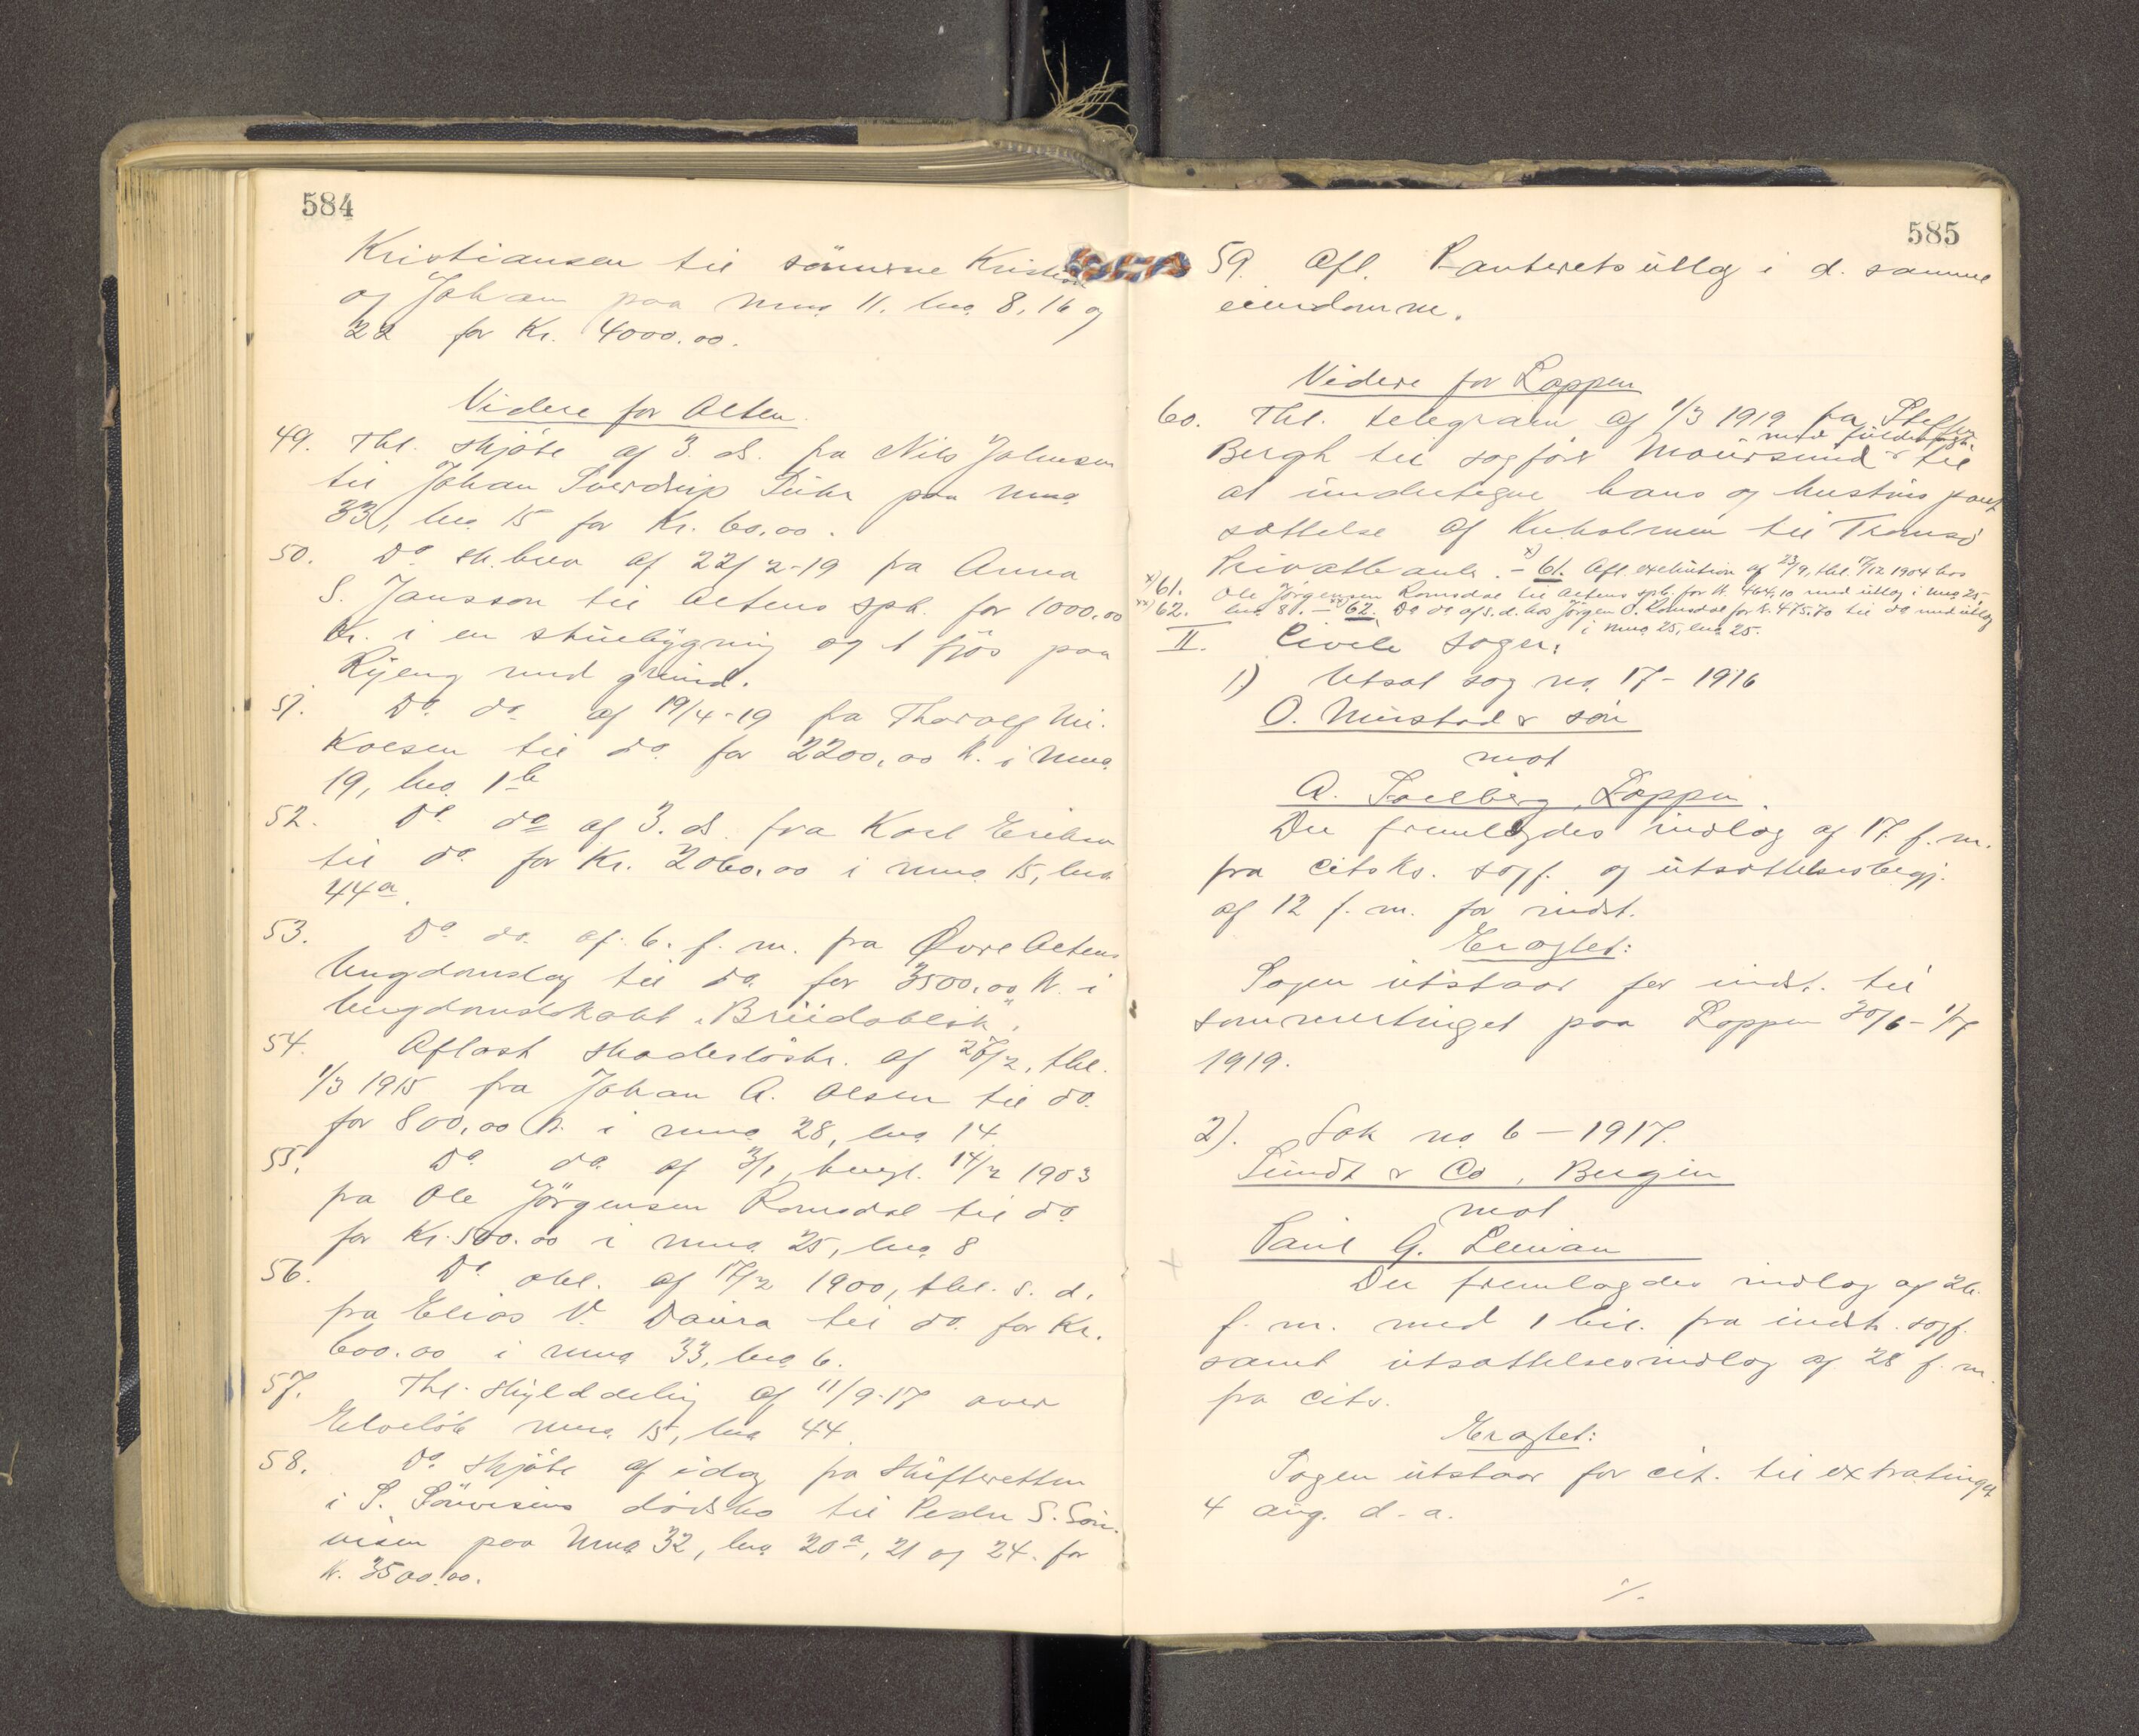 584
Kristiansen til sönnerne Kristian
og Johan paa mno. 11. bno. 8, 16 og
22 for Kr. 4000.00.
Videre for Alten.
49. Thl. skjöte af 3. ds. fra Nils Johnsen
til Johan Sverdrup Suhr paa mno.
33, bno 15 for Kr. 60,00.
50. Do sk.brev af 22/2-19 fra Anna
S. Jansson til Altens spb. for 1000,00
Kr. i en stuebygning og 1 fjös paa
Ryeng med grund.
51. Do. do. af 19/4-19 fra Thoralf Mi-
kolsen til do. for 2200,00 K. i mno.
19, bno. 1b
52. Do do af 3. ds. fra Karl Eriksen
til do. for Kr. 2060,00 i mno. 15, bno
44a.
53. Do do. af 6. f. m. fra Øvre Altens
Ungdomslag til do. for 3500,00 K. i
Ungdomslokalet "Breidablik".
54. Aflöst skadeslösbr. af 26/2, thl.
1/3 1915 fra Johan A. Olsen til do.
for 800,00 K. i mno. 28, bno 14.
55. Do. do. af 3/1, tingl. 14/2 1903
fra Ole Jörgensen Romsdal til do.
for Kr. 500.00 i mno. 25, bno. 8
56. Do obl. af 17/2 1900, thl. s. d.
fra Elias V. Daura til do. for Kr.
600.00 i mno 33, bno 6.
57. Thl. skylddeling af 11/9-17 over
Elvelöb mno. 15, bno 44.
58. Do. skjöte af idag fra skifteretten
i S. Sönvisens dödsbo til Peder S. Sön-
visen paa mno 32, bno 20a, 21 og 24. for
K. 3500.00.
585
59. Afl. Panterets utlæg i d. samme
eiendomme.
Videre for Loppen
60. Thl. telegram af 1/3 1919 fra Steffen
med fuldmagt
Bergh til sagförer Moursund til
at undertegne hans og hustrus pant
sættelse af Kuholmen til Tromsö
Privatbank. - x) 61. Afl. exekution af 23/9, thl. 17/12 1904 hos
x) 61. Ole Jörgensen Romsdal til Altens spb. for K. 464,10 med utlæg i mno 25,
xx) 62. bno 8. - xx) 62. Do do af s. d. hos Jörgen O. Romsdal for K. 475.70 til do med utlæg
i mno 25, bno 25.
II. Civile sager.
1) Utsat sag no. 17 - 1916
O. Mustad & sön
mot
A. Solberg, Loppen.
Der fremlagdes indlæg af 17. f. m.
fra citsks. sagf. og utsættelsesbegj.
af 12 f. m. for indst.
Eragtet:
Sagen utstaar for indst. til
sommertinget paa Loppen 30/6 - 1/7
1919.
2). Sak no 6 - 1917.
Sundt & Co, Bergen
mot
Paul G. Leinan
Der fremlagdes indlæg af 26.
f. m. med 1 bil. fra indst. sagf.
samt utsættelsesindlæg af 28 f. m.
fra cits.
Eragtet:
Sagen utstaar for cit. til extratinget
4 aug. d. a.